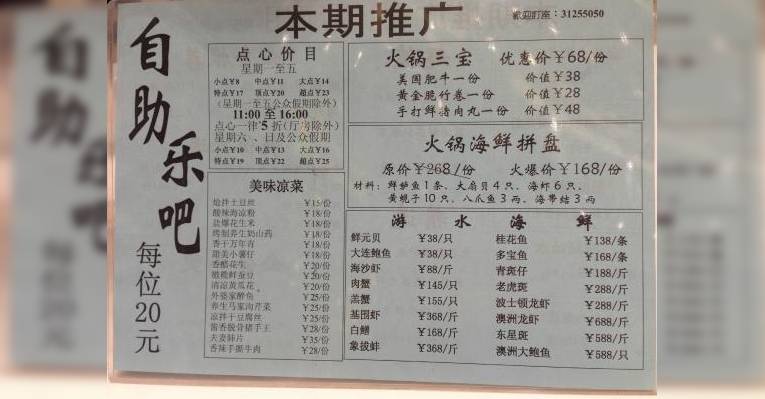 本期推广
欢迎订座：31255050
自助乐吧
每位20元
点心价目
星期一至五
小点¥8 中点¥11 大点¥14
特点¥17 顶点¥20 超点¥23
（星期一至五公众假期除外）
11:00 至 16:00
点心一律5折（厅房除外）
星期六、日及公众假期
小点¥10 中点¥13 大点¥16
特点¥19 顶点¥22 超点¥25
美味凉菜
炝拌土豆丝 ¥15/份
酸辣海凉粉 ¥18/份
盐爆花生米 ¥18/份
烤制养生奶山药 ¥18/份
香干万年青 ¥18/份
甜美小薯仔 ¥18/份
香醋花生 ¥20/份
橄榄鲜蚕豆 ¥20/份
清凉黄瓜花 ¥20/份
外婆家醉鱼 ¥25/份
养生马家沟芹菜 ¥25/份
凉拌干豆腐丝 ¥25/份
酱香脱骨猪手王 ¥28/份
夫妻肺片 ¥35/份
香辣手撕牛肉 ¥28/份
火锅三宝 优惠价¥68/份
美国肥牛一份 价值¥38
黄金脆竹卷一份 价值¥28
手打鲜猪肉丸一份 价值¥48
火锅海鲜拼盘
原价¥268/份 火爆价¥168/份
材料：鲜鲈鱼1条、大扇贝4只、海虾6只、
黄蚬子10只、八爪鱼3两、海带结3两
游水海鲜
鲜元贝 ¥38/只 桂花鱼 ¥138/条
大连鲍鱼 ¥38/只 多宝鱼 ¥168/条
海沙虾 ¥88/斤 青斑仔 ¥188/斤
肉蟹 ¥145/只 老虎斑 ¥288/斤
羔蟹 ¥155/只 波士顿龙虾 ¥288/斤
基围虾 ¥368/斤 澳洲龙虾 ¥688/斤
白鳝 ¥168/斤 东星斑 ¥588/斤
象拔蚌 ¥368/斤 澳洲大鲍鱼 ¥588/只